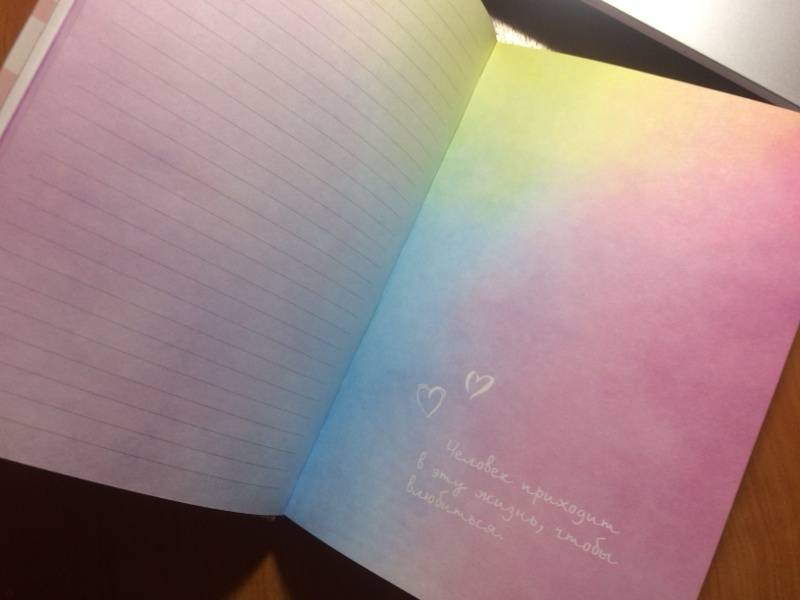 Человек приходит
в эту жизнь, чтобы
влюбиться.